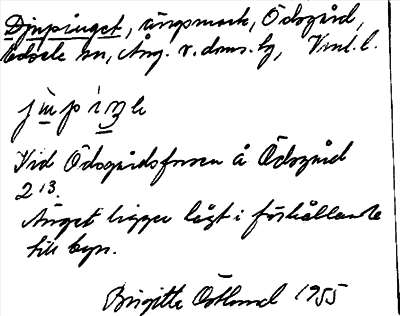 Djupinget, ängsmark, Ödsgård,
Edsele sn, Ång. v. doms. hg, Vnl. l.
Vid Ödsgårdsforsen å Ödsgård
2 13.
Änget ligger lågt i förhållande
till byn.
Birgitta Östlund 1955